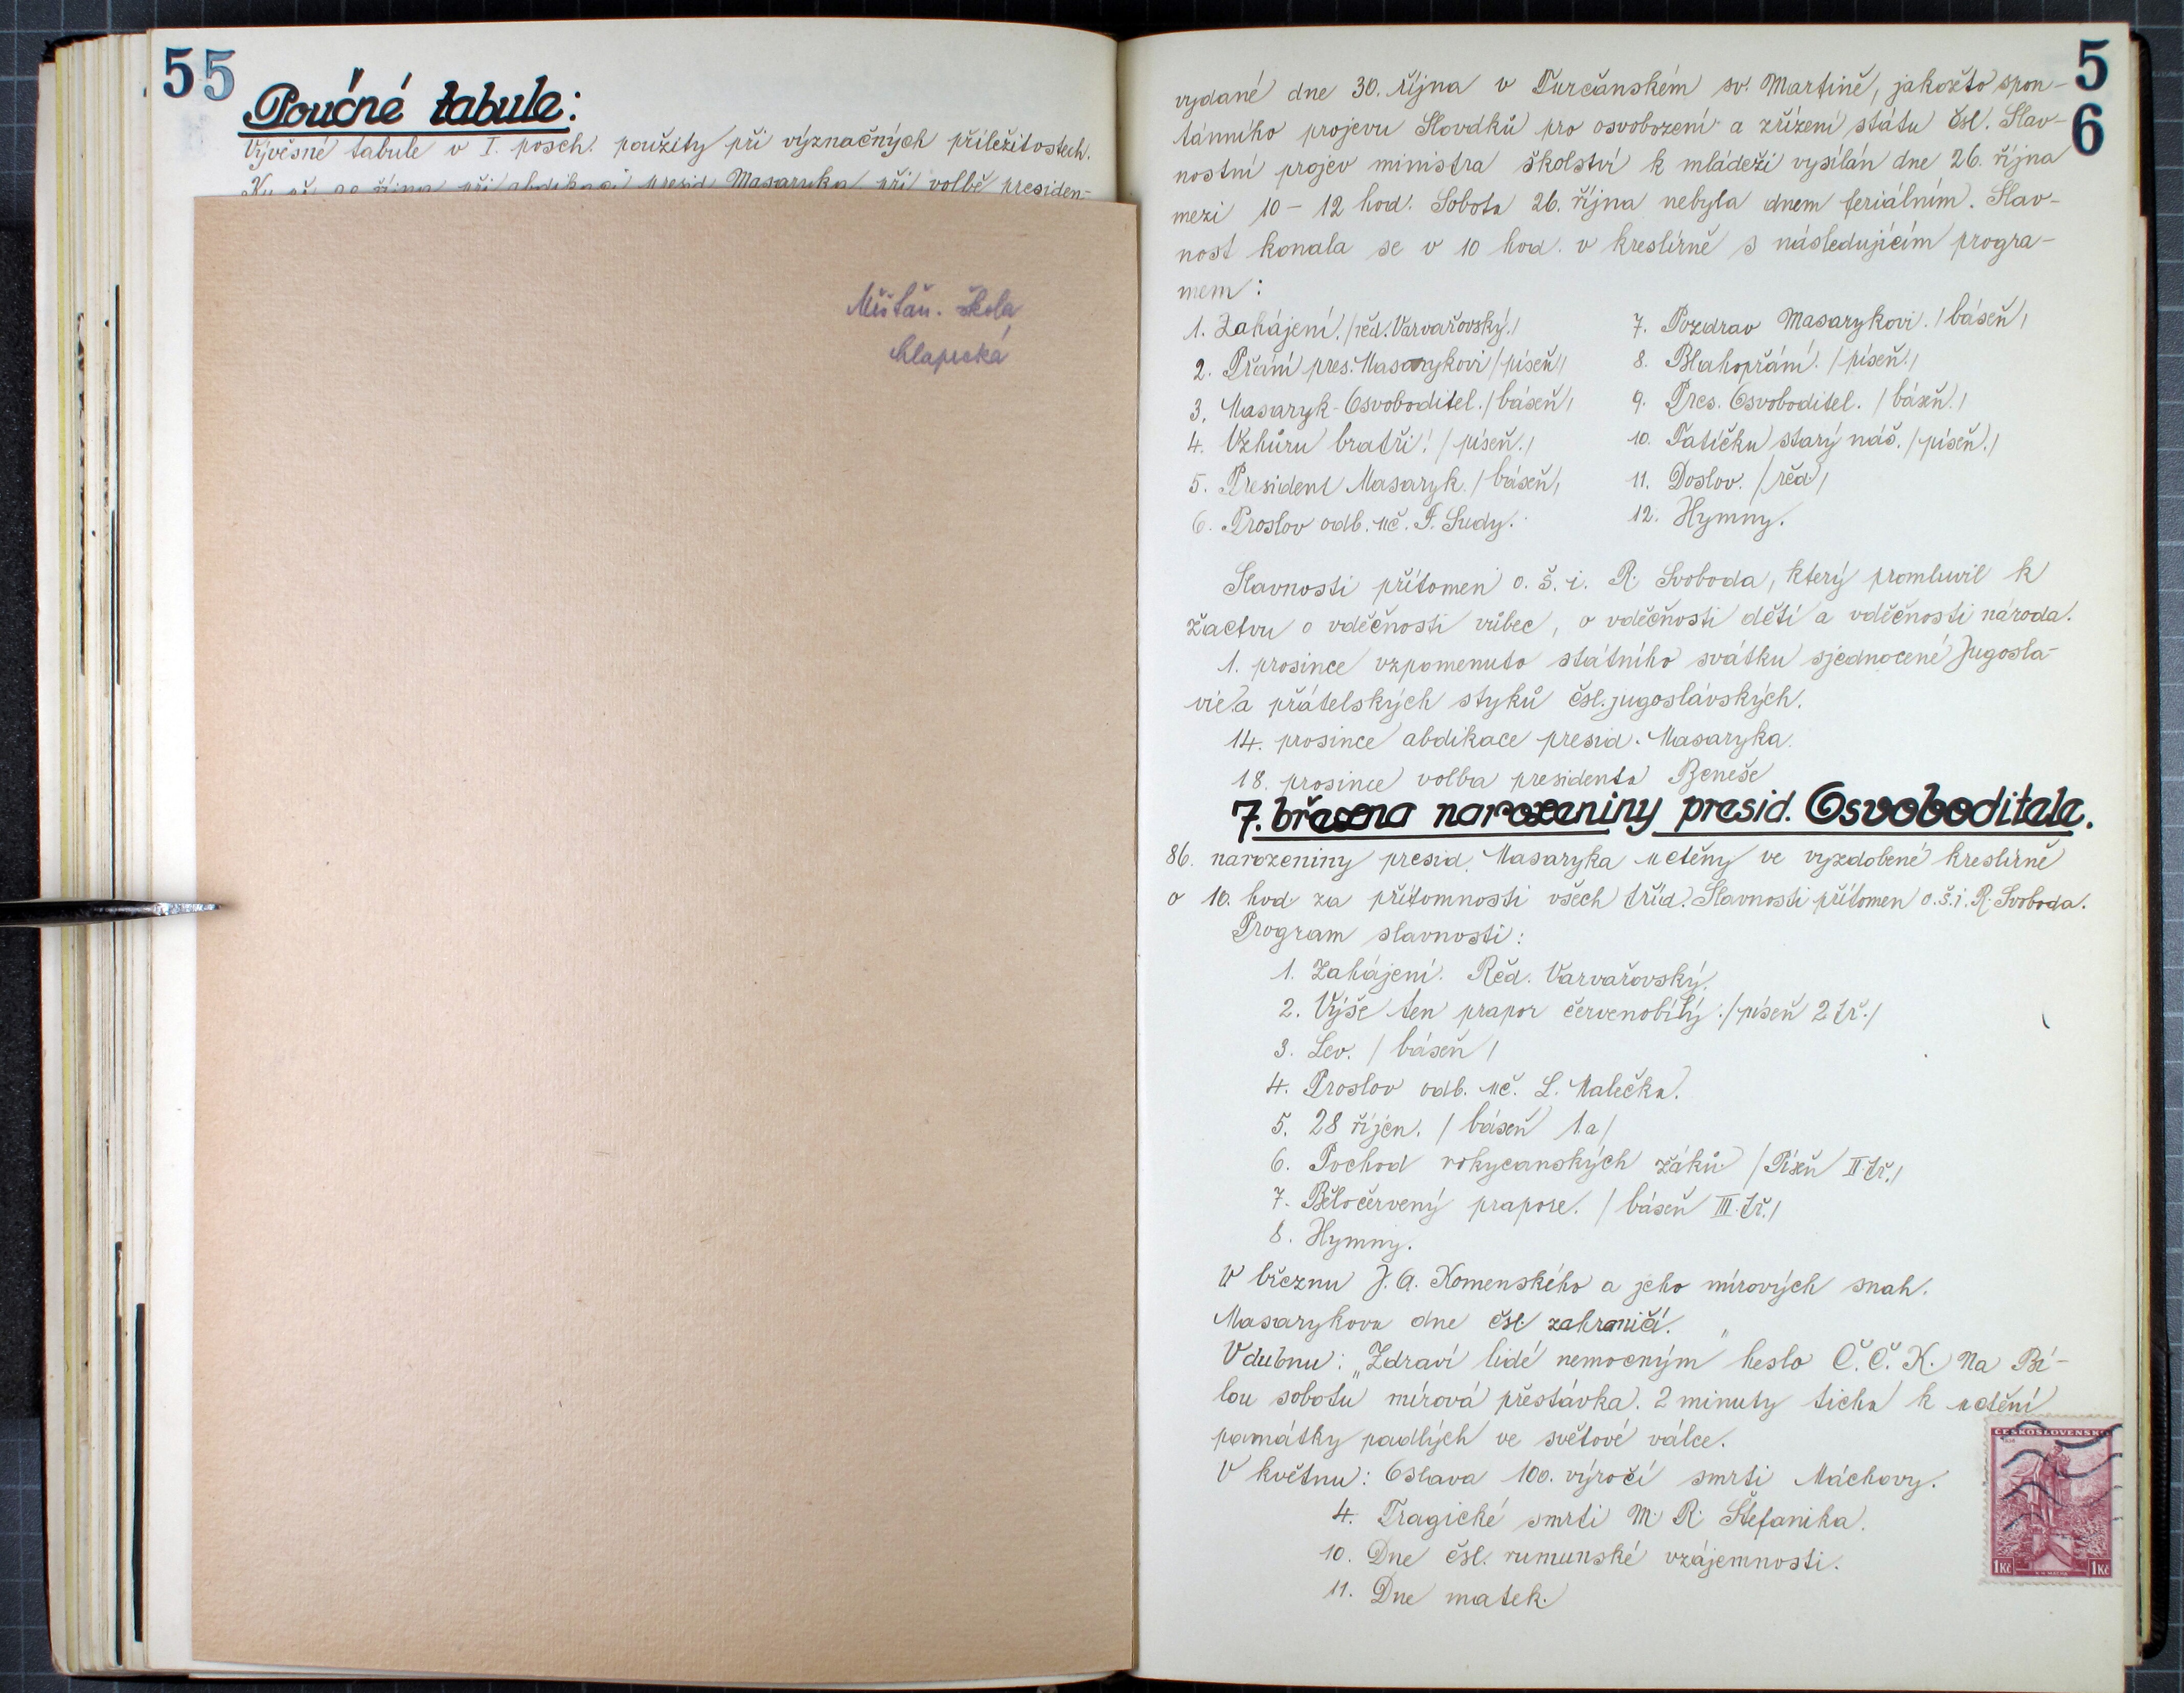 55
Poučné tabule:
Vývěsné tabule v I. posch. použity při význačných příležitostech.
při abdikaci presid. Masaryka při volbě presiden-
Měšťan. škola
chlapecká
56
vydané dne 30. října v Turčánském sv. Martině, jakožto spon-
tánního projevu Slováků pro osvobození a zřízení státu čsl. Slav-
nostní projev ministra školství k mládeži vysílán dne 26. října
mezi 10 – 12 hod. Sobota 26. října nebyla dnem feriálním. Slav-
nost konala se v 10 hod. v kreslírně s následujícím progra-
mem:
1. Zahájení. /řed. Varvařovský./
2. Přání pres. Masarykovi /píseň/
3. Masaryk-Osvoboditel. /báseň/
4. Vzhůru bratři! /píseň./
5. President Masaryk. /báseň/
6. Proslov odb. uč. F. Sudy.
7. Pozdrav Masarykovi. /báseň/
8. Blahopřání. /píseň./
9. Pres. Osvoboditel. /báseň./
10. Tatíčku starý náš. /píseň./
11. Doslov. /řed/
12. Hymny.
Slavnosti přítomen o. š. i. R. Svoboda, který promluvil k
žactvu o vděčnosti vůbec, o vděčnosti dětí a vděčnosti národa.
1. prosince vzpomenuto státního svátku sjednocené Jugosla-
vie a přátelských styků čsl. jugoslávských.
14. prosince abdikace presid. Masaryka.
18. prosince volba presidenta Beneše
7. března narozeniny presid. Osvoboditele.
86. narozeniny presid. Masaryka uctěny ve vyzdobené kreslírně
o 10. hod za přítomnosti všech tříd. Slavnosti přítomen o. š. i. R. Svoboda.
Program slavnosti:
1. Zahájení. Řed. Varvařovský.
2. Výše ten prapor červenobílý. /píseň 2 tř./
3. Lev. /báseň/
4. Proslov odb. uč. L. Malečka.
5. 28 říjen. /báseň 1.a/
6. Pochod rokycanských žáků /Píseň II tř./
7. Běločervený prapore. /báseň III. tř./
8. Hymny.
V březnu J. A. Komenského a jeho mírových snah.
Masarykova dne čsl zahraničí.
V dubnu: „Zdraví lidé nemocným" heslo Č. Č. K. Na Bí-
lou sobotu mírová přestávka. 2 minuty ticha k uctění
památky padlých ve světové válce.
V květnu: Oslava 100. výročí smrti Máchovy.
4. Tragické smrti M. R. Štefanika.
10. Dne čsl. rumunské vzájemnosti.
11. Dne matek.
ČESKOSLOVENSKO
1Kč 1Kč